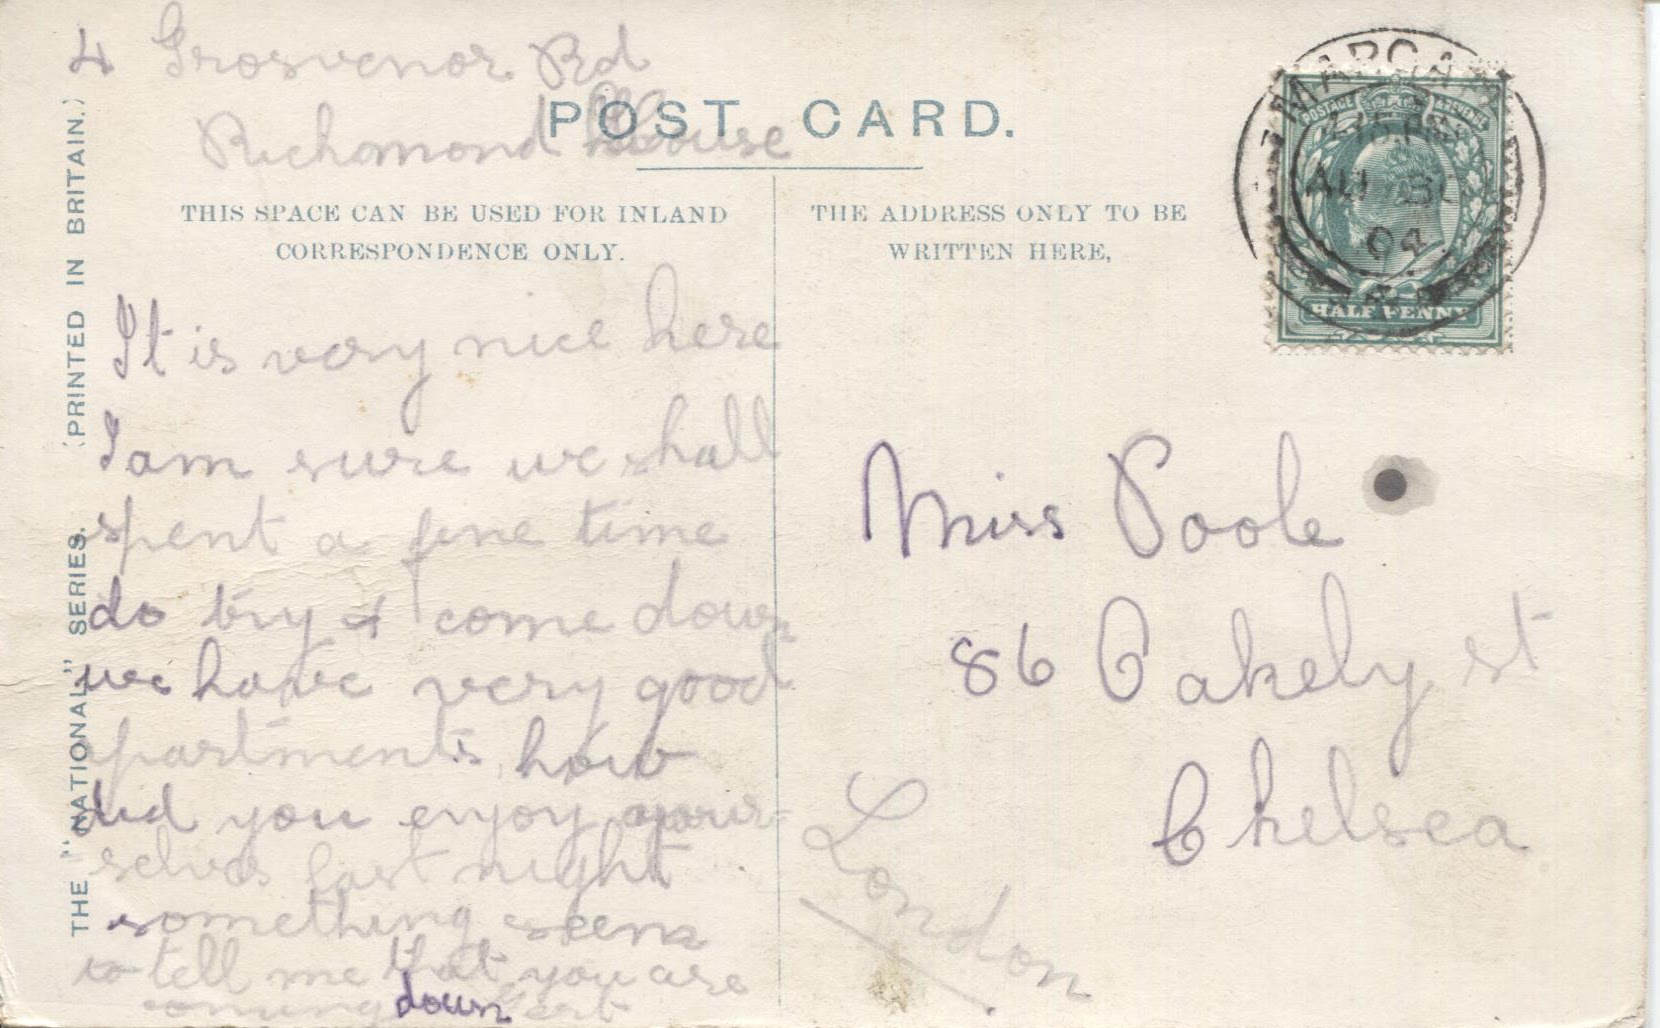 4 Grosvenor Rd
Richmond House
POST CARD.
THIS SPACE CAN BE USED FOR INLAND
CORRESPONDENCE ONLY.
THE ADDRESS ONLY TO BE
WRITTEN HERE,
MARGATE
4.15 PM
AU 30
04
POSTAGE & REVENUE
HALF PENNY
THE "NATIONAL" SERIES. (PRINTED IN BRITAIN.)
It is very nice here
I am sure we shall
spent a fine time
do try & come down
we have very good
apartments how
did you enjoy your=
selves last night
something seems
to tell me that you are
coming down Gert
Miss Poole
86 Oakely st
Chelsea
London